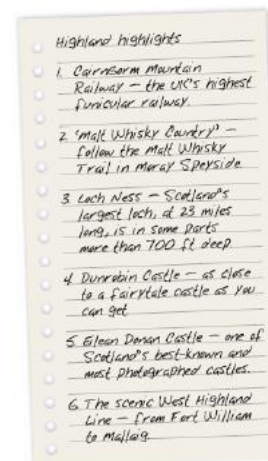 Highland highlights
1. Cairngorm Mountain
Railway – the UK's highest
funicular railway.
2 "Malt Whisky Country" –
follow the Malt Whisky
Trail in Moray Speyside
3 Loch Ness – Scotland's
largest loch, at 23 miles
long, is in some parts
more than 700 ft deep
4 Dunrobin Castle – as close
to a fairytale castle as you
can get
5 Eilean Donan Castle – one of
Scotland's best-known and
most photographed castles.
6 The scenic West Highland
Line – from Fort William
to Mallaig